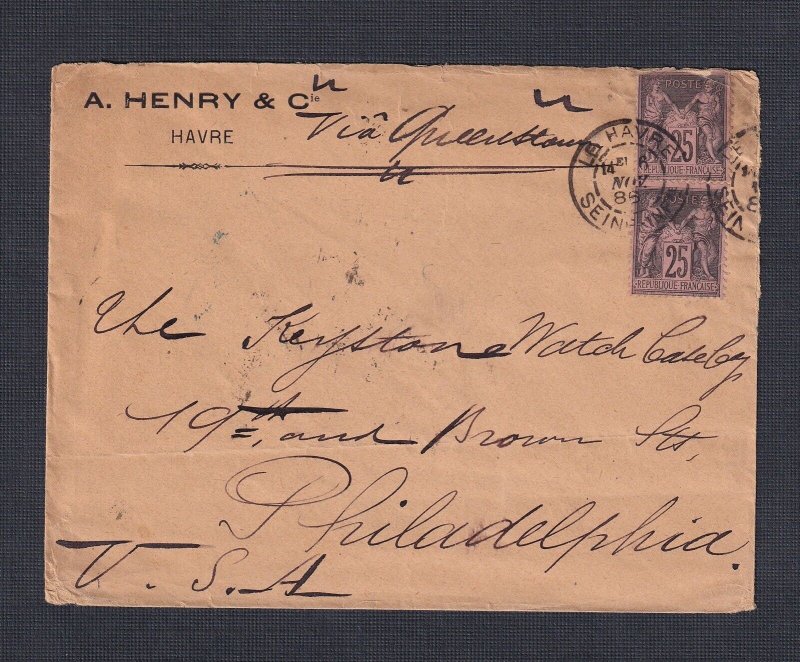 A. HENRY & Cie
HAVRE
Viâ Queenstown
POSTE
25
REPUBLIQUE FRANÇAISE
LE HAVRE
14
NOV
86
SEINE INF
POSTE
25
REPUBLIQUE FRANÇAISE
SEIN
The Keystone Watch Case Co
19th, and Brown Sts,
Philadelphia.
U.S.A